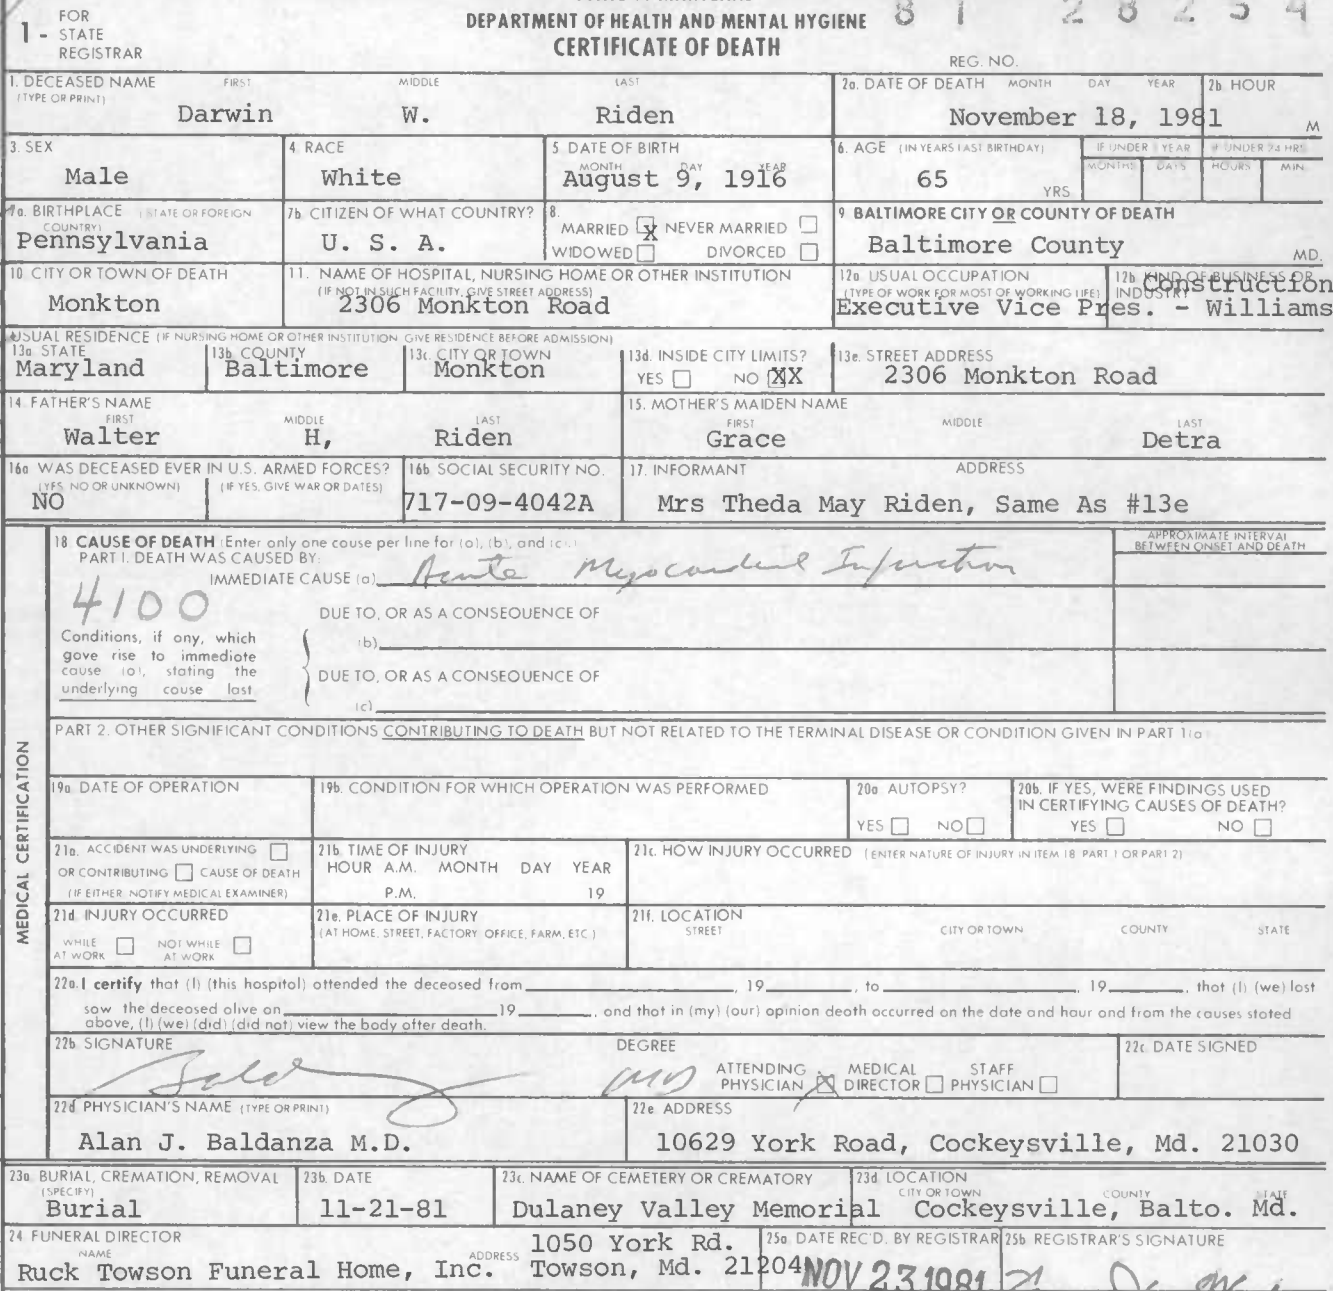 FOR
1 - STATE
REGISTRAR
DEPARTMENT OF HEALTH AND MENTAL HYGIENE
CERTIFICATE OF DEATH
8 1 2 8 2 5 4
REG. NO.
1. DECEASED NAME FIRST MIDDLE LAST
(TYPE OR PRINT)
Darwin W. Riden
2a. DATE OF DEATH MONTH DAY YEAR
November 18, 1981
2b. HOUR
M
3. SEX
Male
4. RACE
White
5. DATE OF BIRTH
MONTH DAY YEAR
August 9, 1916
6. AGE (IN YEARS LAST BIRTHDAY)
65
YRS
IF UNDER 1 YEAR
MONTHS DAYS
IF UNDER 24 HRS
HOURS MIN.
7a. BIRTHPLACE (STATE OR FOREIGN
COUNTRY)
Pennsylvania
7b. CITIZEN OF WHAT COUNTRY?
U. S. A.
8.
MARRIED X NEVER MARRIED
WIDOWED DIVORCED
9 BALTIMORE CITY OR COUNTY OF DEATH
Baltimore County
MD.
10. CITY OR TOWN OF DEATH
Monkton
11. NAME OF HOSPITAL, NURSING HOME OR OTHER INSTITUTION
(IF NOT IN SUCH FACILITY, GIVE STREET ADDRESS)
2306 Monkton Road
12a. USUAL OCCUPATION
(TYPE OF WORK FOR MOST OF WORKING LIFE)
12b. KIND OF BUSINESS OR
INDUSTRY
Construction
Executive Vice Pres. - Williams
USUAL RESIDENCE (IF NURSING HOME OR OTHER INSTITUTION GIVE RESIDENCE BEFORE ADMISSION)
13a. STATE
Maryland
13b. COUNTY
Baltimore
13c. CITY OR TOWN
Monkton
13d. INSIDE CITY LIMITS?
YES NO XX
13e. STREET ADDRESS
2306 Monkton Road
14. FATHER'S NAME
FIRST MIDDLE LAST
Walter H, Riden
15. MOTHER'S MAIDEN NAME
FIRST MIDDLE LAST
Grace Detra
16a. WAS DECEASED EVER IN U.S. ARMED FORCES?
(YES, NO OR UNKNOWN) (IF YES, GIVE WAR OR DATES)
NO
16b. SOCIAL SECURITY NO.
717-09-4042A
17. INFORMANT ADDRESS
Mrs Theda May Riden, Same As #13e
MEDICAL CERTIFICATION
18. CAUSE OF DEATH (Enter only one cause per line for (a), (b), and (c).)
PART I. DEATH WAS CAUSED BY:
IMMEDIATE CAUSE (a) Acute Myocardial Infarction
APPROXIMATE INTERVAL
BETWEEN ONSET AND DEATH
4100
DUE TO, OR AS A CONSEQUENCE OF
(b)
Conditions, if any, which
gave rise to immediate
cause (a), stating the
underlying cause last
DUE TO, OR AS A CONSEQUENCE OF
(c)
PART 2. OTHER SIGNIFICANT CONDITIONS CONTRIBUTING TO DEATH BUT NOT RELATED TO THE TERMINAL DISEASE OR CONDITION GIVEN IN PART 1(a)
19a. DATE OF OPERATION
19b. CONDITION FOR WHICH OPERATION WAS PERFORMED
20a. AUTOPSY?
YES NO
20b. IF YES, WERE FINDINGS USED
IN CERTIFYING CAUSES OF DEATH?
YES NO
21a. ACCIDENT WAS UNDERLYING
OR CONTRIBUTING CAUSE OF DEATH
(IF EITHER, NOTIFY MEDICAL EXAMINER)
21b. TIME OF INJURY
HOUR A.M. MONTH DAY YEAR
P.M. 19
21c. HOW INJURY OCCURRED (ENTER NATURE OF INJURY IN ITEM 18 PART 1 OR PART 2)
21d. INJURY OCCURRED
WHILE AT WORK NOT WHILE AT WORK
21e. PLACE OF INJURY
(AT HOME, STREET, FACTORY, OFFICE, FARM, ETC.)
21f. LOCATION
STREET CITY OR TOWN COUNTY STATE
22a. I certify that (I) (this hospital) attended the deceased from , 19 , to , 19 , that (I) (we) last
saw the deceased alive on 19 , and that in (my) (our) opinion death occurred on the date and hour and from the causes stated
above, (I) (we) (did) (did not) view the body after death.
22b. SIGNATURE DEGREE
MD
ATTENDING PHYSICIAN X MEDICAL DIRECTOR STAFF PHYSICIAN
22c. DATE SIGNED
22d. PHYSICIAN'S NAME (TYPE OR PRINT)
Alan J. Baldanza M.D.
22e. ADDRESS
10629 York Road, Cockeysville, Md. 21030
23a. BURIAL, CREMATION, REMOVAL
(SPECIFY)
Burial
23b. DATE
11-21-81
23c. NAME OF CEMETERY OR CREMATORY
Dulaney Valley Memorial
23d. LOCATION
CITY OR TOWN COUNTY STATE
Cockeysville, Balto. Md.
24. FUNERAL DIRECTOR
NAME ADDRESS
Ruck Towson Funeral Home, Inc.
1050 York Rd.
Towson, Md. 21204
25a. DATE REC'D. BY REGISTRAR
NOV 23 1981
25b. REGISTRAR'S SIGNATURE